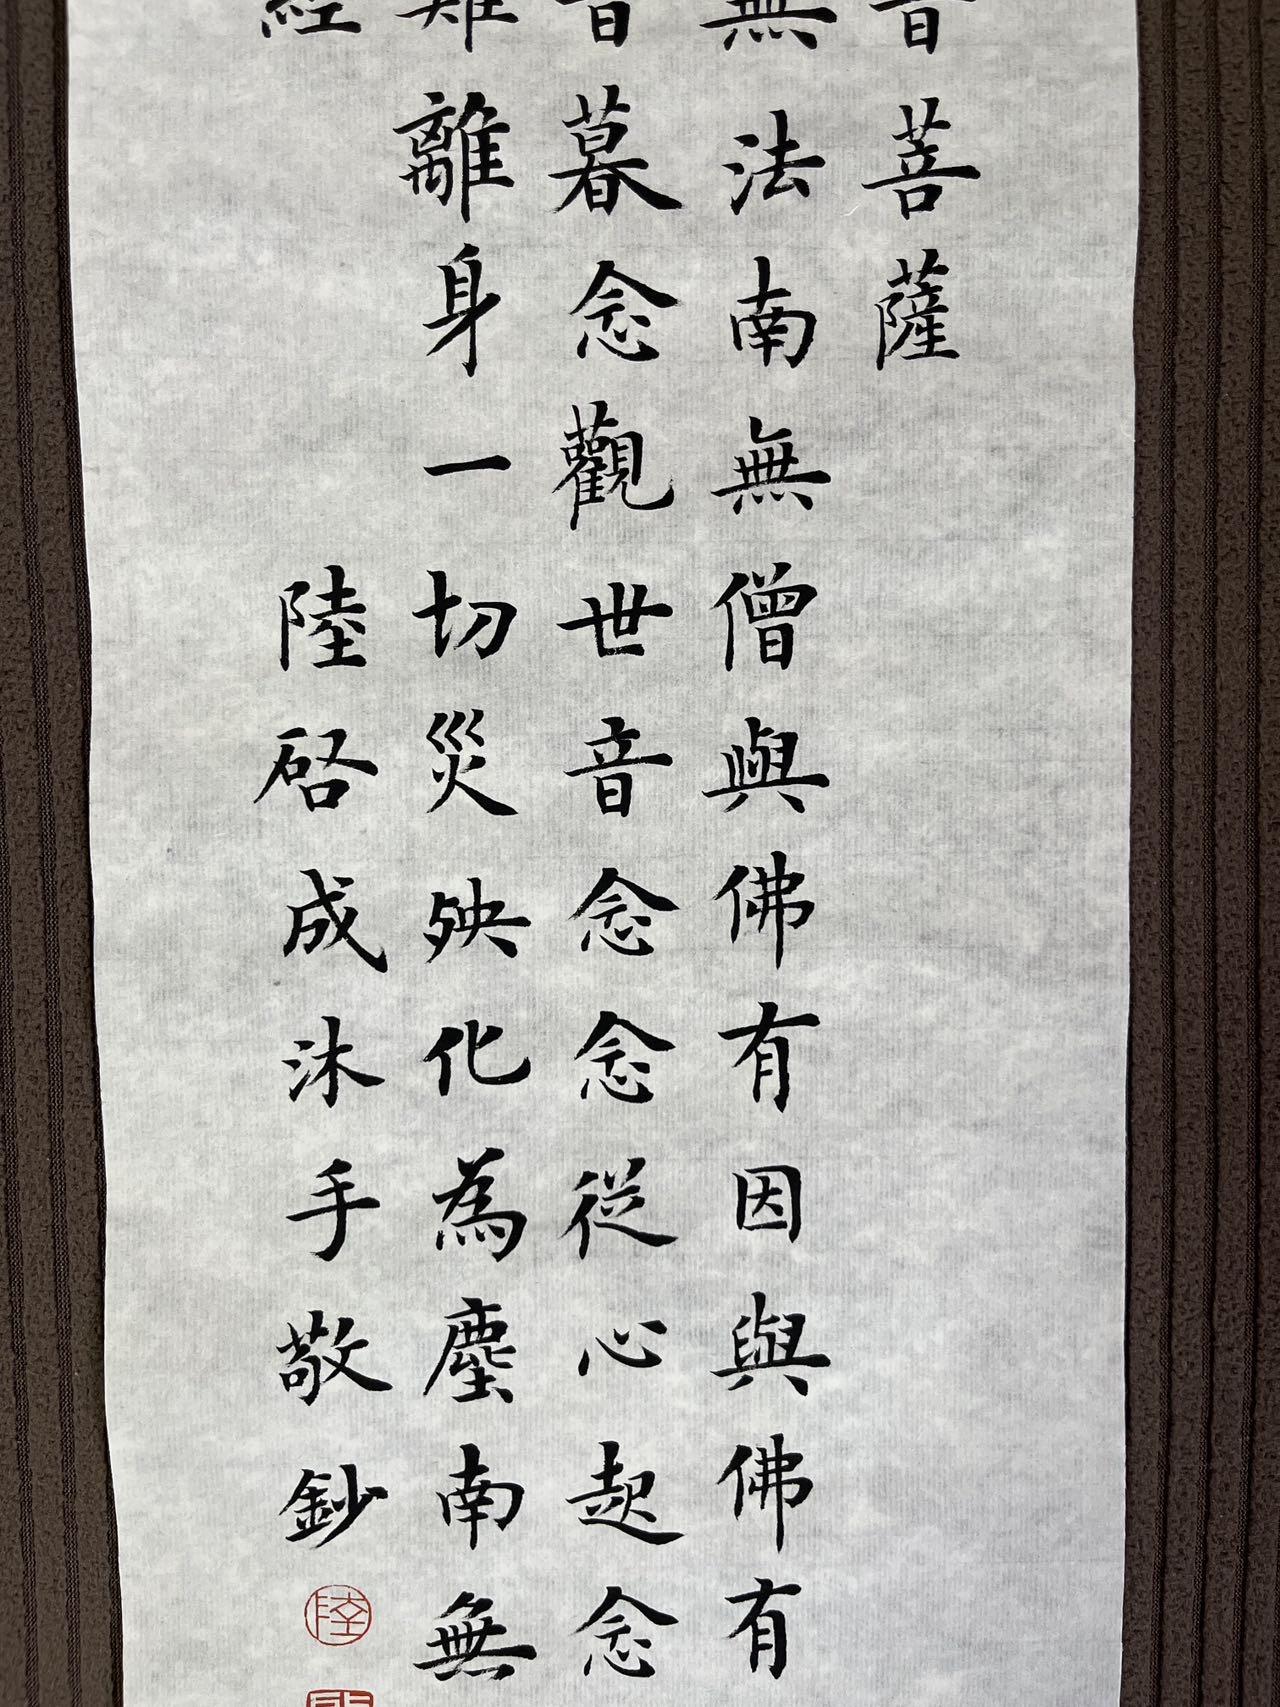 音菩薩
無法南無僧與佛有因與佛有
音暮念觀世音念念從心起念
難離身一切災殃化為塵南無
經
陸啓成沐手敬鈔
陸